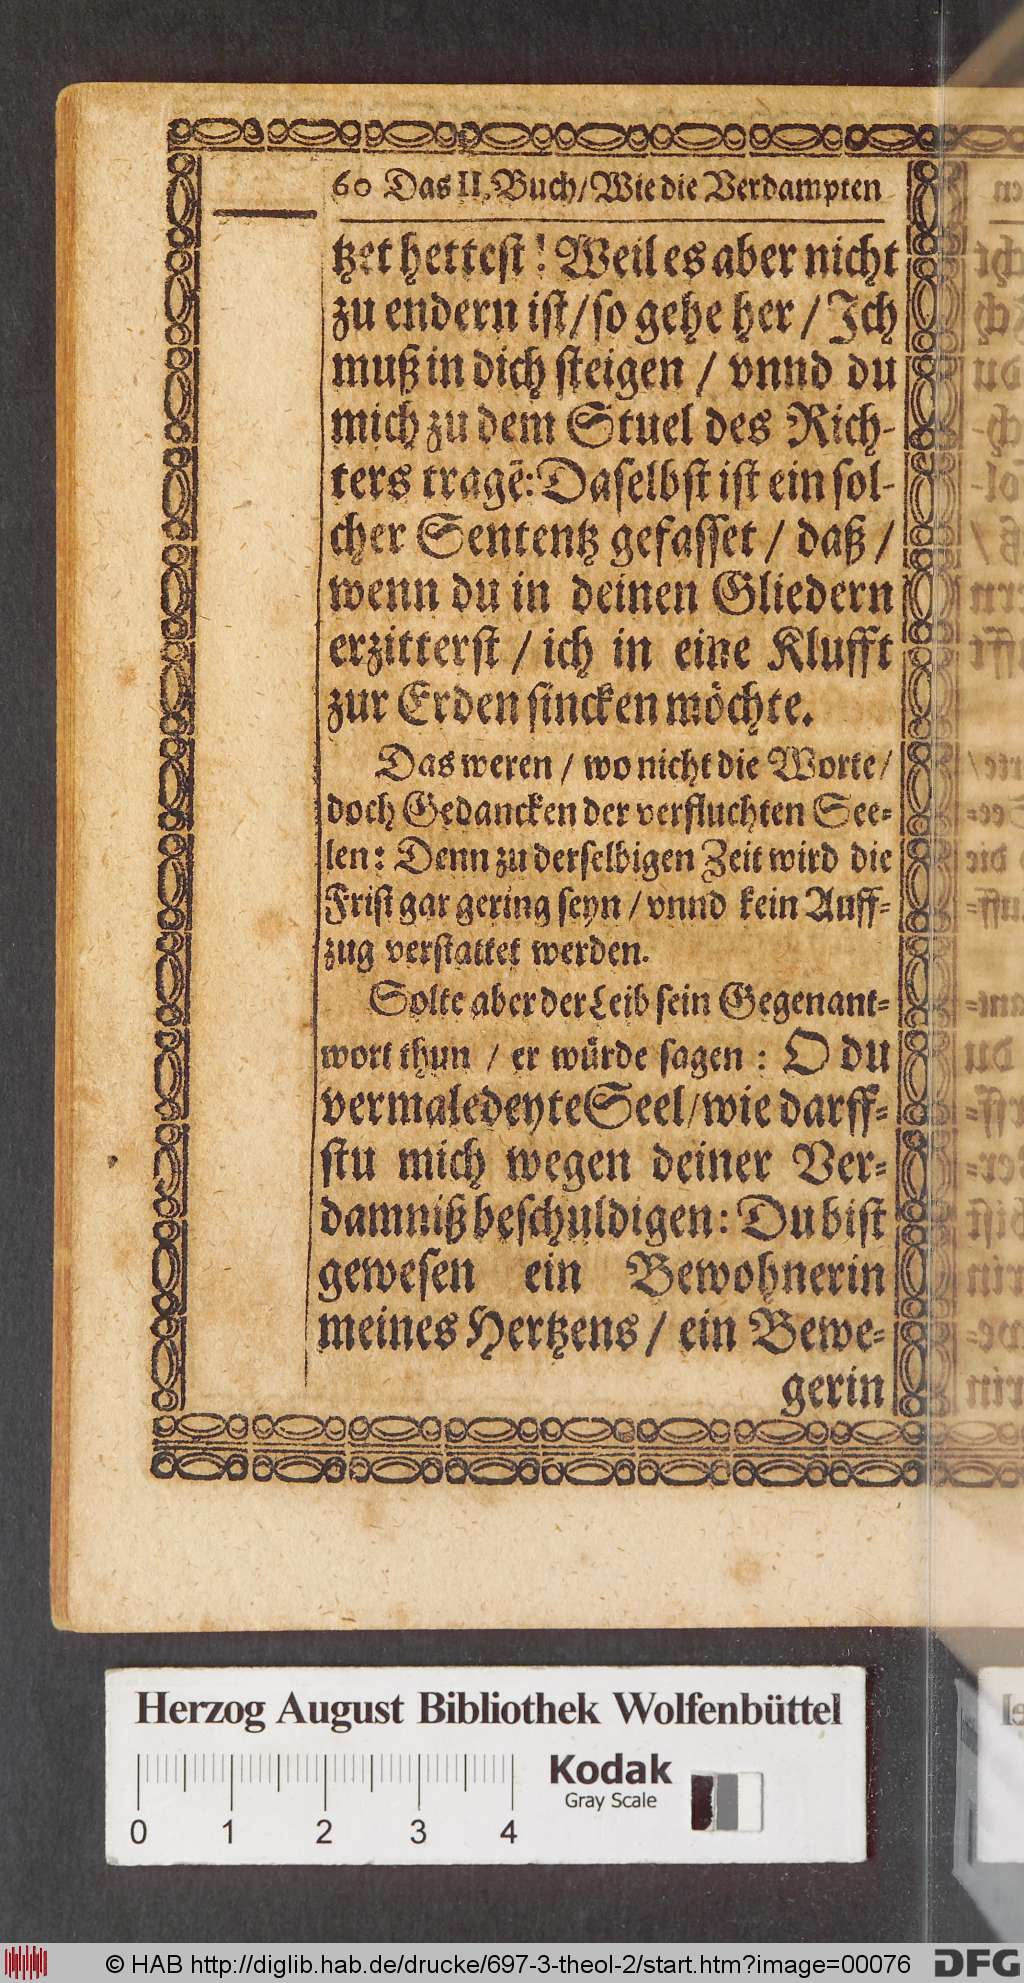 60 Das II. Buch/ Wie die Verdampten
tzet hettest! Weil es aber nicht
zu endern ist/ so gehe her / Jch
muß in dich steigen / vnnd du
mich zu dem Stuel des Rich-
ters tragē: Daselbst ist ein sol-
cher Sententz gefasset / daß /
wenn du in deinen Gliedern
erzitterst / ich in eine Klufft
zur Erden sincken möchte.
Das weren / wo nicht die Worte/
doch Gedancken der verfluchten See-
len: Denn zu derselbigen Zeit wird die
Frist gar gering seyn / vnnd kein Auff-
zug verstattet werden.
Solte aber der Leib sein Gegenant-
wort thun / er würde sagen : O du
vermaledeyte Seel/ wie darff-
stu mich wegen deiner Ver-
damniß beschuldigen: Du bist
gewesen ein Bewohnerin
meines Hertzens / ein Bewe-
gerin
Herzog August Bibliothek Wolfenbüttel
0 1 2 3 4
Kodak
Gray Scale
© HAB http://diglib.hab.de/drucke/697-3-theol-2/start.htm?image=00076
DFG